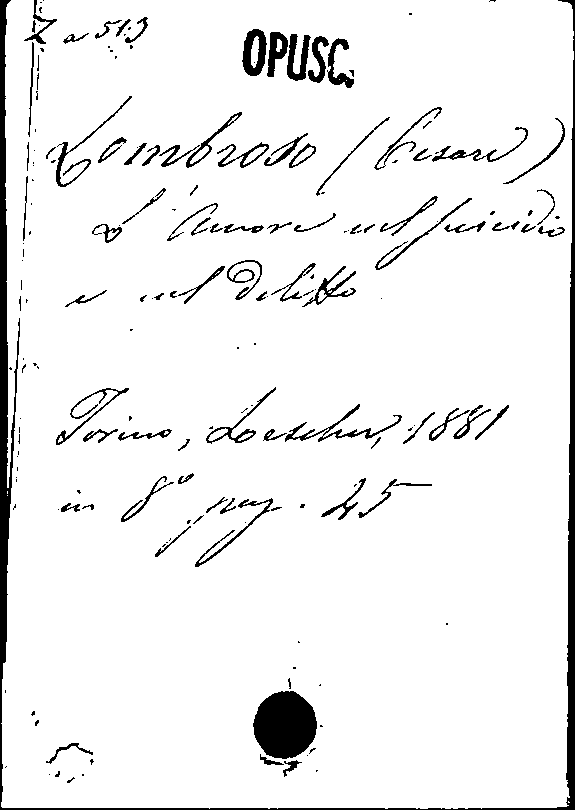 Z a 513
OPUSC.
Lombroso (Cesare)
L'Amore nel suicidio
e nel delitto
Torino, Loescher, 1881
in 8° pag. 45